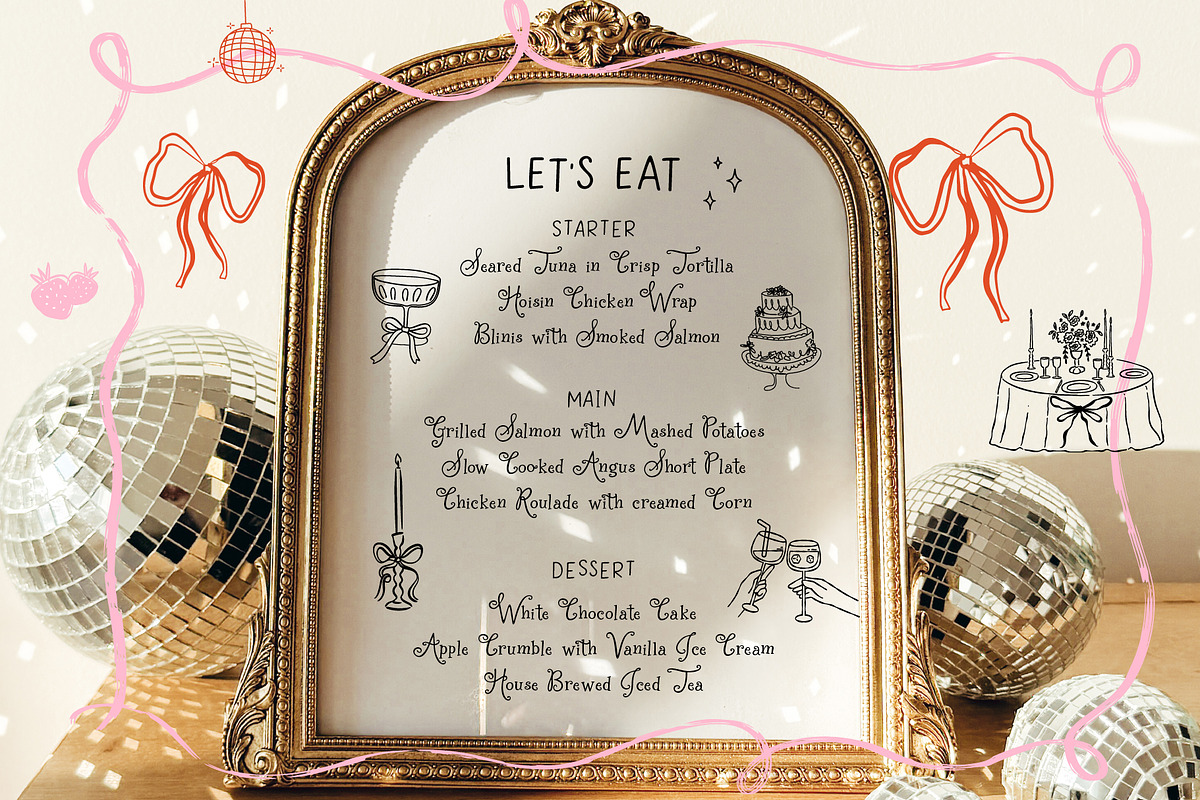 LET'S EAT
STARTER
Seared Tuna in Crisp Tortilla
Hoisin Chicken Wrap
Blinis with Smoked Salmon
MAIN
Grilled Salmon with Mashed Potatoes
Slow Cooked Angus Short Plate
Chicken Roulade with creamed Corn
DESSERT
White Chocolate Cake
Apple Crumble with Vanilla Ice Cream
House Brewed Iced Tea